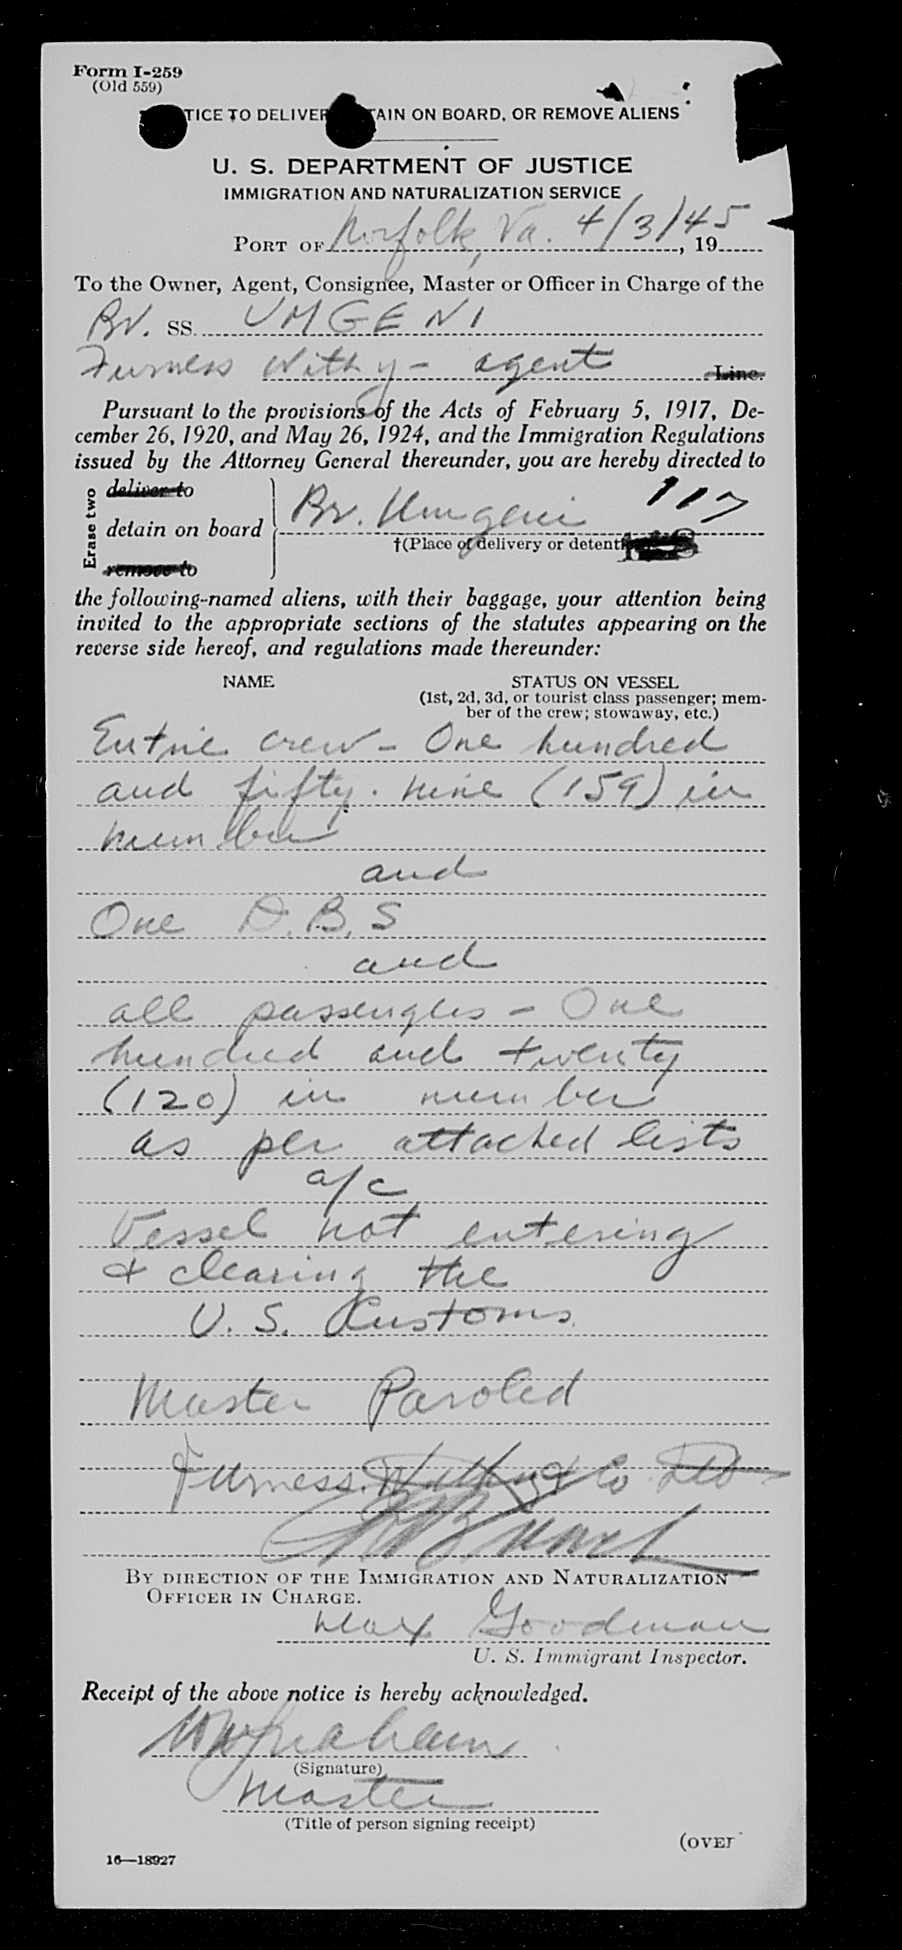 Form I-259
(Old 559)
TICE TO DELIVER TAIN ON BOARD, OR REMOVE ALIENS
U. S. DEPARTMENT OF JUSTICE
IMMIGRATION AND NATURALIZATION SERVICE
PORT OF Norfolk, Va. 4/3/45, 19
To the Owner, Agent, Consignee, Master or Officer in Charge of the
Br. SS. UMGENI
Furness Withy - agent Line.
Pursuant to the provisions of the Acts of February 5, 1917, De-
cember 26, 1920, and May 26, 1924, and the Immigration Regulations
issued by the Attorney General thereunder, you are hereby directed to
Erase two
deliver to
detain on board
remove to
Br. Umgeni 117
†(Place of delivery or detent
the following-named aliens, with their baggage, your attention being
invited to the appropriate sections of the statutes appearing on the
reverse side hereof, and regulations made thereunder:
NAME STATUS ON VESSEL
(1st, 2d, 3d, or tourist class passenger; mem-
ber of the crew; stowaway, etc.)
Entire crew - One hundred
and fifty-nine (159) in
number
and
One D.B.S
and
all passengers - One
hundred and twenty
(120) in number
as per attached lists
a/c
Vessel not entering
& clearing the
U. S. Customs.
Master Paroled
Furness, Withy & Co Ltd
BY DIRECTION OF THE IMMIGRATION AND NATURALIZATION
OFFICER IN CHARGE.
Max Goodman
U. S. Immigrant Inspector.
Receipt of the above notice is hereby acknowledged.
(Signature)
Master
(Title of person signing receipt)
(OVER
16—18927